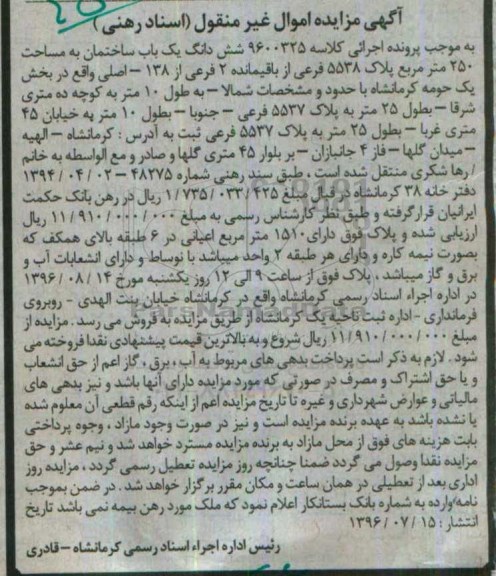 آگهی مزایده اموال غیر منقول (اسناد رهنی)
به موجب پرونده اجرائی کلاسه ۹۶۰۰۳۲۵ شش دانگ یک باب ساختمان به مساحت
۲۵۰ متر مربع پلاک ۵۵۳۸ فرعی از باقیمانده ۲ فرعی از ۱۳۸ – اصلی واقع در بخش
یک حومه کرمانشاه با حدود و مشخصات شمالا – به طول ۱۰ متر به کوچه ده متری
شرقا – بطول ۲۵ متر به پلاک ۵۵۳۷ فرعی – جنوبا – بطول ۱۰ متر به خیابان ۴۵
متری غربا – بطول ۲۵ متر به پلاک ۵۵۳۷ فرعی ثبت به آدرس : کرمانشاه – الهیه
– میدان گلها – فاز ۴ جانبازان – بر بلوار ۴۵ متری گلها و صادر و مع الواسطه به خانم
زها شکری منتقل شده است ، طبق سند رهنی شماره ۴۸۲۷۵ – ۱۳۹۴/۰۴/۰۲
دفتر خانه ۳۸ کرمانشاه در قبال مبلغ ۱/۷۳۵/۰۳۳/۴۲۵ ریال در رهن بانک حکمت
ایرانیان قرار گرفته و طبق نظر کارشناس رسمی به مبلغ ۱۱/۹۱۰/۰۰۰/۰۰۰ ریال
ارزیابی شده و پلاک فوق دارای ۱۵۱۰ متر مربع اعیانی در ۶ طبقه بالای همکف که
بصورت نیمه کاره و دارای هر طبقه ۲ واحد میباشد با نوساط و دارای انشعابات آب و
برق و گاز میباشد ، پلاک فوق از ساعت ۹ الی ۱۲ روز یکشنبه مورخ ۱۳۹۶/۰۸/۱۴
در اداره اجراء اسناد رسمی کرمانشاه واقع در کرمانشاه خیابان بنت الهدی – روبروی
فرمانداری – اداره ثبت ناحیه یک کرمانشاه از طریق مزایده به فروش می رسد . مزایده از
مبلغ ۱۱/۹۱۰/۰۰۰/۰۰۰ ریال شروع و به بالاترین قیمت پیشنهادی نقدا فروخته می
شود . لازم به ذکر است پرداخت بدهی های مربوط به آب ، برق ، گاز اعم از حق انشعاب
و یا حق اشتراک و مصرف در صورتی که مورد مزایده دارای آنها باشد و نیز بدهی های
مالیاتی و عوارض شهرداری و غیره تا تاریخ مزایده اعم از اینکه رقم قطعی آن معلوم شده
یا نشده باشد به عهده برنده مزایده است و نیز در صورت وجود مازاد ، وجوه پرداختی
بابت هزینه های فوق از محل مازاد به برنده مزایده مسترد خواهد شد و نیم عشر و حق
مزایده نقدا وصول می گردد ضمنا چنانچه روز مزایده تعطیل رسمی گردد ، مزایده روز
اداری بعد از تعطیلی در همان ساعت و مکان مقرر برگزار خواهد شد . در ضمن بموجب
نامه وارده به شماره بانک بستانکار اعلام نمود که ملک مورد رهن بیمه نمی باشد تاریخ
انتشار : ۱۳۹۶/۰۷/۱۵
رئیس اداره اجراء اسناد رسمی کرمانشاه – قادری